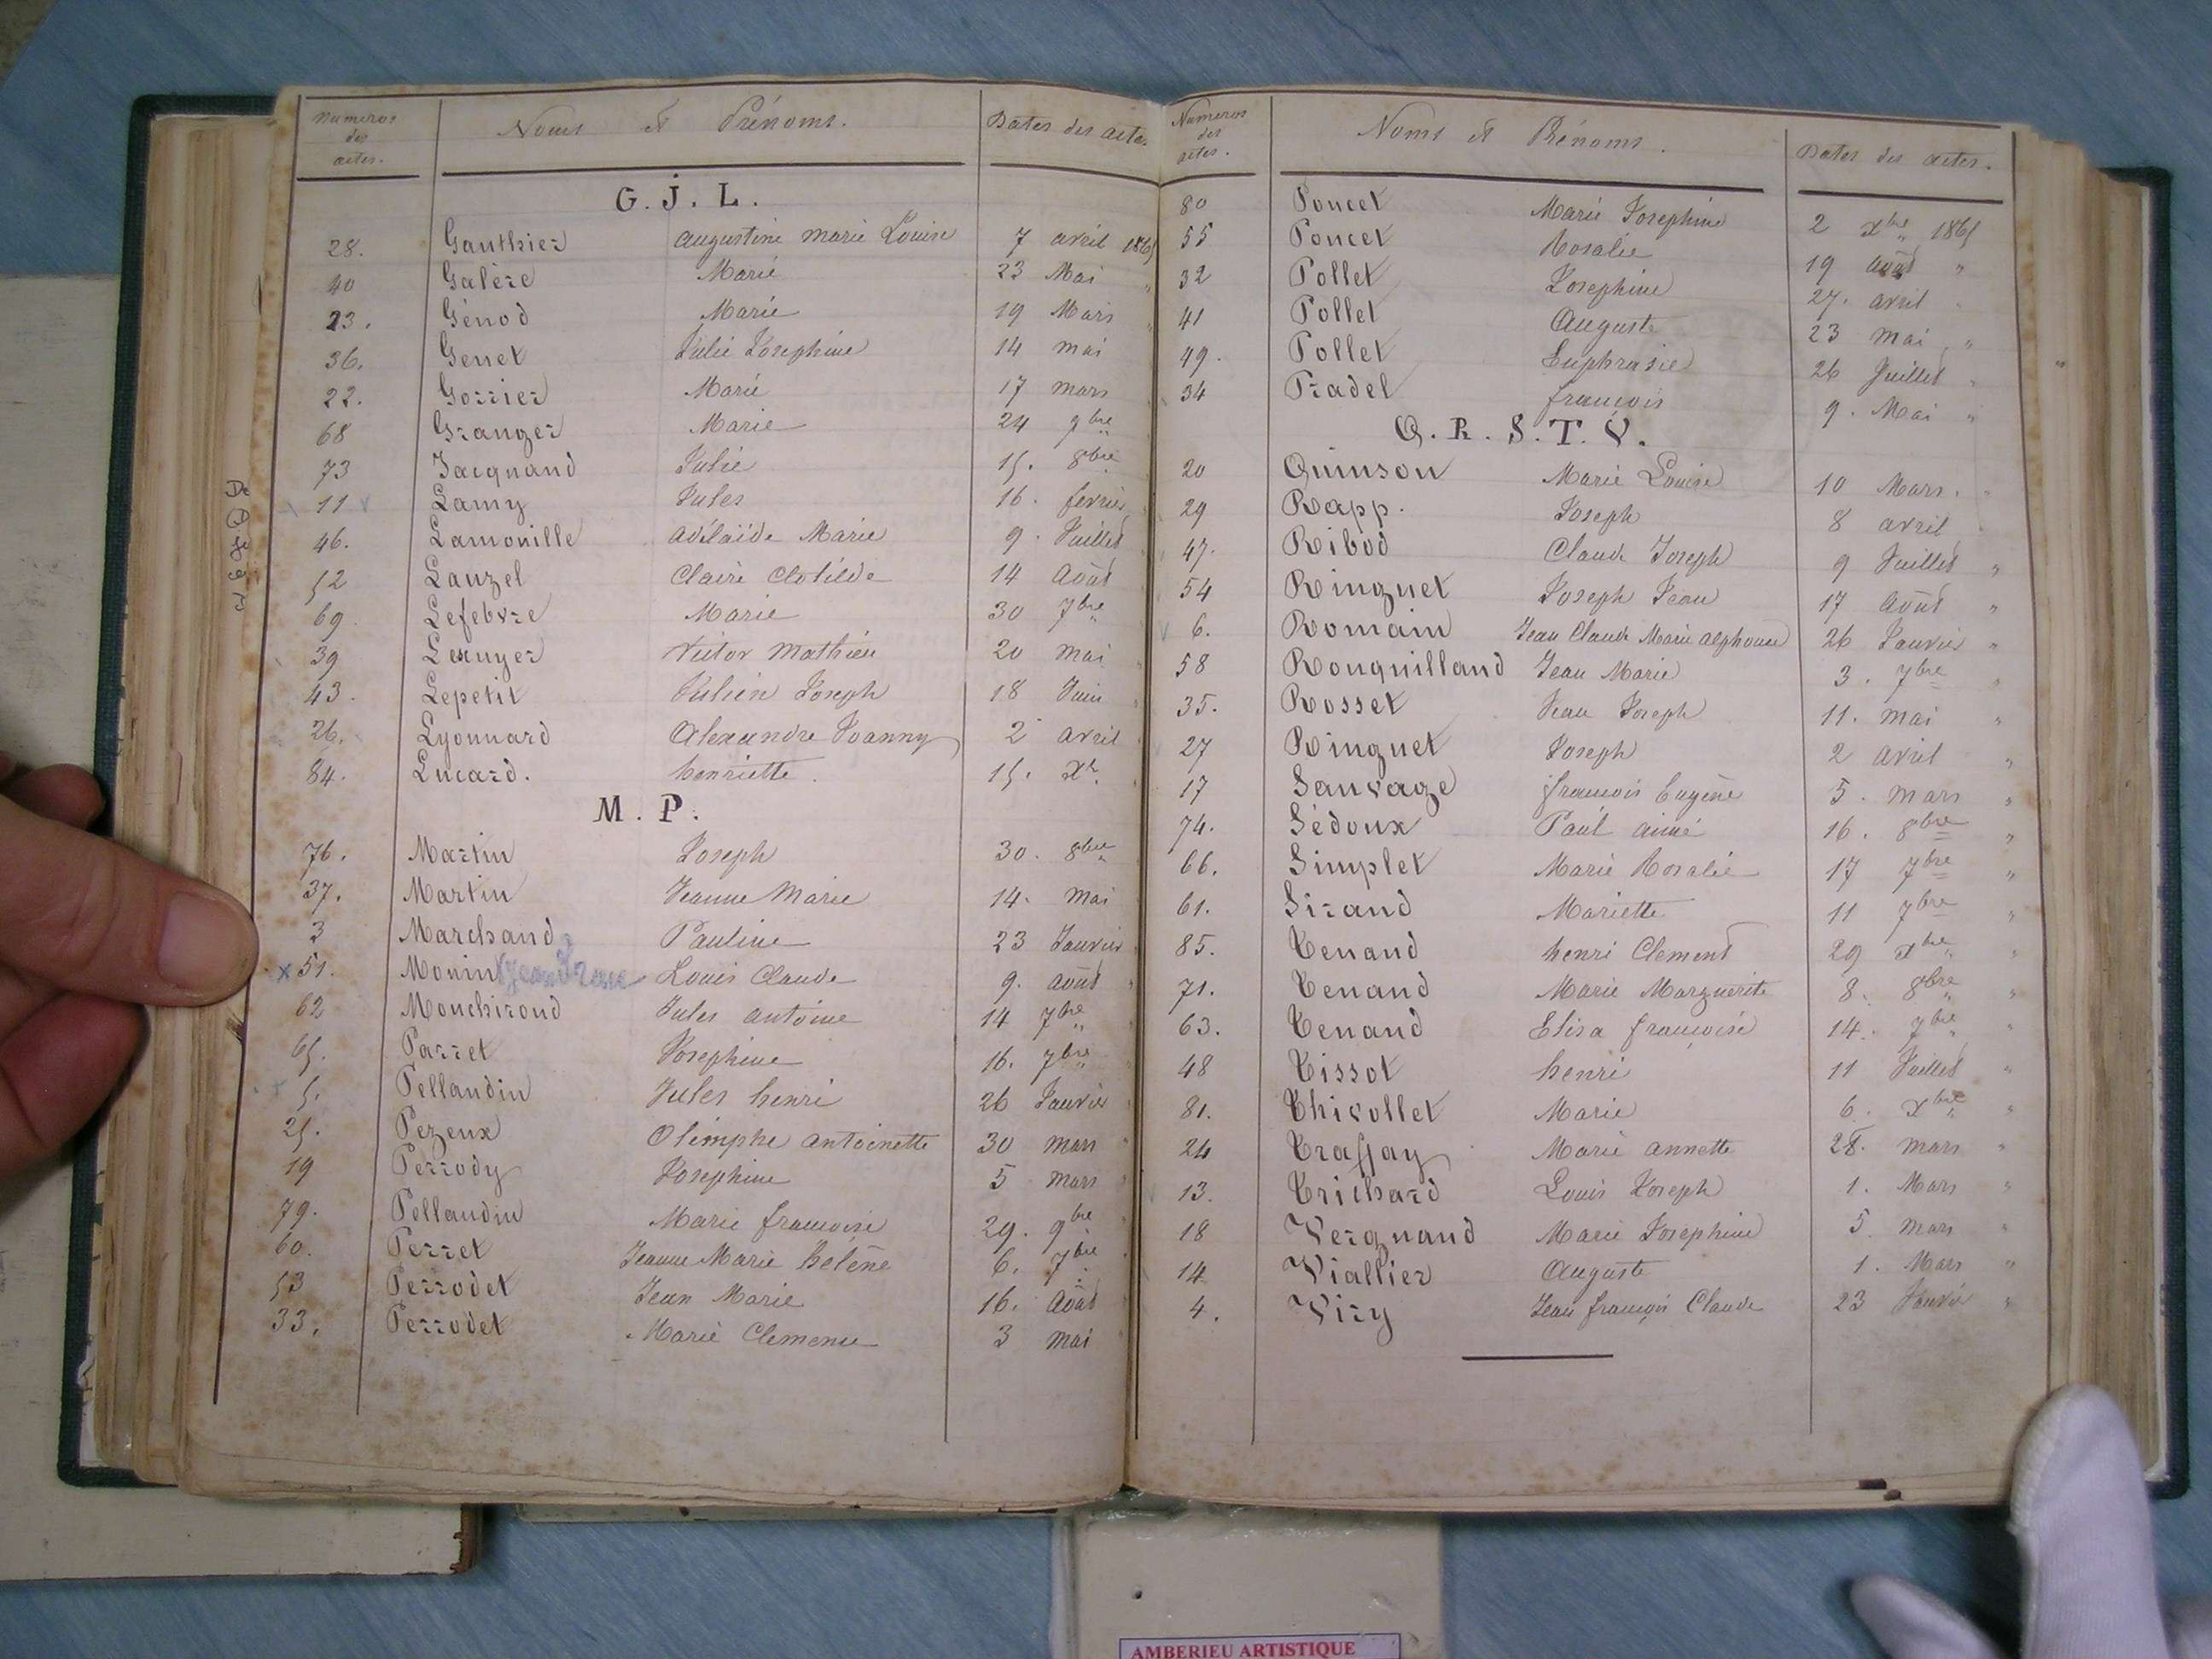 Numeros des actes. Noms et Prénoms. Dates des actes
G. J. L.
28. Gauthier augustine marie Louise 7 avril 1865
40 Galère Marie 23 Mai "
23. Génod Marie 19 Mars "
36. Genet Julie Josephine 14 mai
22. Gorrier Marie 17 mars
68 Granger Marie 24 7bre
73 Jacquand Julie 15. 8bre
11 Lamy Jules 16. fevrier
46. Lamouille adélaïde Marie 9. Juillet
52 Lauzel Claire Clotilde 14 Août
69. Lefebvre Marie 30 7bre
39 Lexuyer Victor Mathieu 20 mai
43. Lepetit Julien Joseph 18 Juin
26. Lyonnard Alexandre Joanny 2 avril
84. Lucard. henriette. 15. Xbre
M. P.
76. Martin Joseph 30. 8bre
37. Martin Jeanne Marie 14. mai
3 Marchand Pauline 23 Janvier
x 51. Monin Louis Claude 9. août
62 Monchiroud Jules antoine 14 7bre
65. Parret Josephine 16. 7bre
5. Pellaudin Jules henri 26 Janvier
25. Pezeux Olimphe antoinette 30 mars
19 Perrody Josephine 5 mars
79. Pellaudin Marie françoise 29. 9bre
60. Perret Jeanne Marie helène 6. 7bre
53 Perrodet Jean Marie 16. Août
33. Perrodet Marie Clemence 3 mai
Numeros des actes. Noms et Prénoms. Dates des actes.
80 Poncet Marie Josephine 2 Xbre 1865
55 Poncet Rosalie 19 août "
32 Pollet Josephine 27. avril
41 Pollet Auguste 23 mai "
49. Pollet Euphrasie 26 Juillet "
34 Pradel françois 9. Mai "
Q. R. S. T. V.
20 Quinson Marie Louise 10 Mars.
29 Rapp. Joseph 8 avril
47. Ribod Claude Joseph 9 Juillet "
54 Ringuet Joseph Jean 17 Août "
6. Romain Jean Claude Marie alphonse 26 Janvier "
58 Ronquilland Jean Marie 3. 7bre "
35. Rosset Jean Joseph 11. mai "
27 Ringuet Joseph 2 avril "
17 Sauvage françois Eugène 5. mars "
74. Sédoux Paul aimé 16. 8bre "
66. Simplet Marie Rosalie 17 7bre "
61. Sirand Mariette 11 7bre "
85. Tenand henri Clement 29 Xbre "
71. Tenand Marie Marguerite 8. 8bre "
63. Tenand Elisa françoise 14. 7bre "
48 Tissot henri 11 Juillet "
81. Thivollet Marie 6. Xbre "
24 Traffay Marie annette 28. mars "
13. Trichard Louis Joseph 1. Mars "
18 Vergnand Marie Josephine 5. mars "
14 Viallier Auguste 1. Mars "
4. Viry Jean françois Claude 23 Janvier "
AMBERIEU ARTISTIQUE